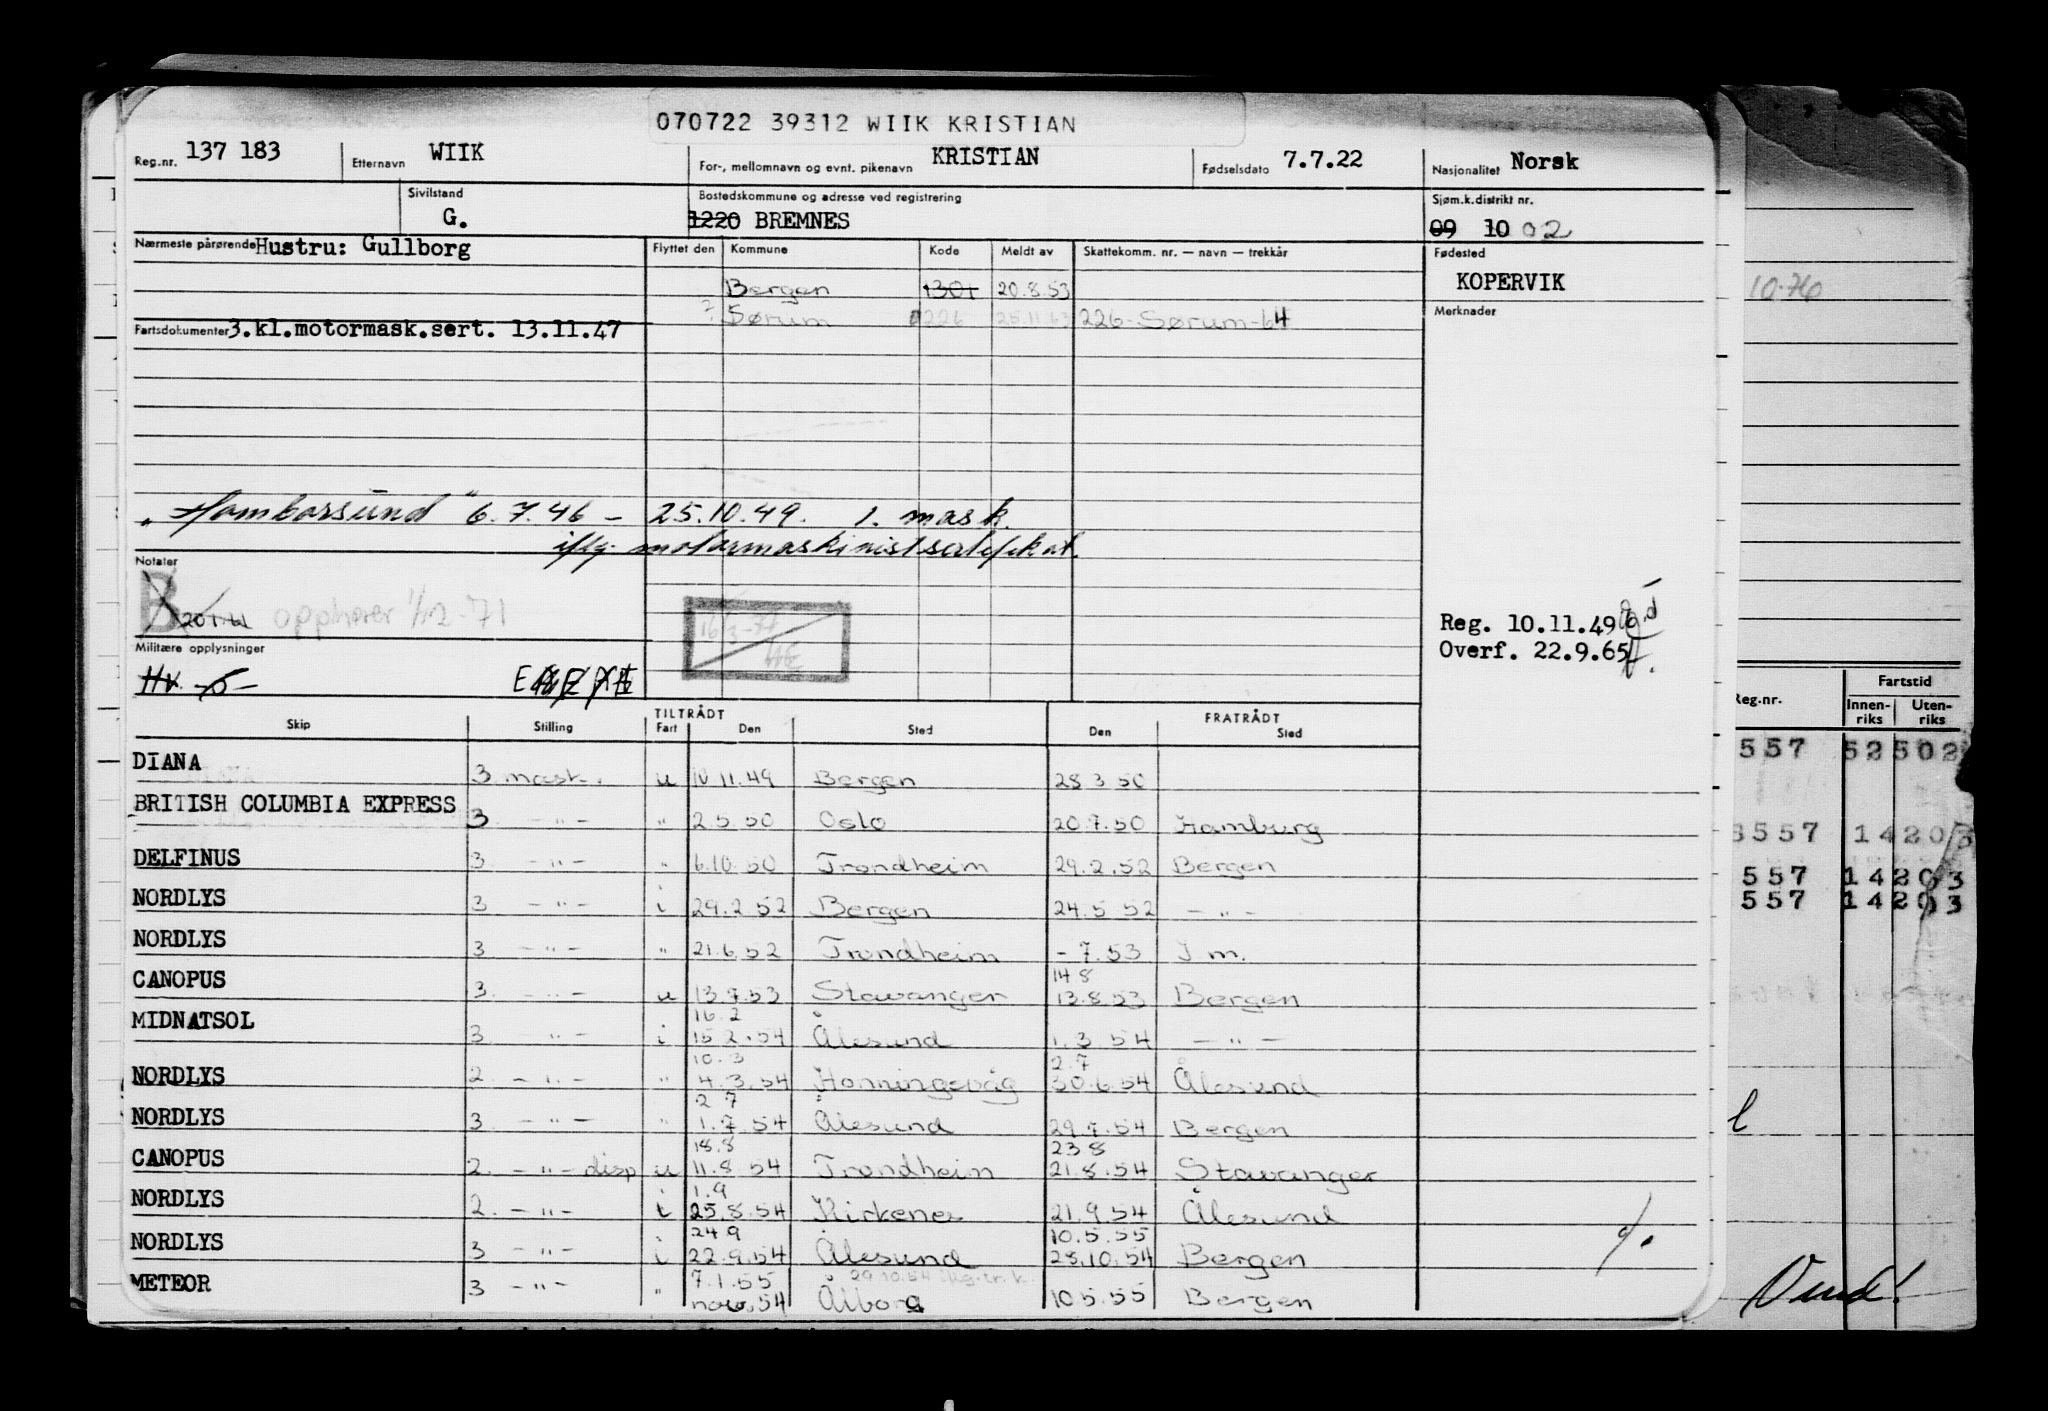 070722 39312 WIIK KRISTIAN
Reg.nr. 137 183 Etternavn WIIK For-, mellomnavn og evnt. pikenavn KRISTIAN Fødselsdato 7.7.22 Nasjonalitet Norsk
Sivilstand G. Bostedskommune og adresse ved registrering 1220 BREMNES Sjøm.k.distrikt nr. 09 10 02
Nærmeste pårørende Hustru: Gullborg Flyttet den Kommune Kode Meldt av Skattekomm. nr. — navn — trekkår Fødested
KOPERVIK
Bergen 1301 20.8.53
? Sørum 226 25.11.63 226-Sørum-64 Merknader
Fartsdokumenter 3.kl.motormask.sert. 13.11.47
10-76
"Hamborsund" 6.7.46 – 25.10.49. 1. mask.
iflg. motormaskinistsertifikat.
Notater
B opphører 1/12-71
16/3-77
Reg. 10.11.49
Overf. 22.9.65
Militære opplysninger
HV
Skip Stilling TILTRÅDT Fart Den Sted FRATRÅDT Den Sted
DIANA 3 mask. u 10.11.49 Bergen 28 3 50
BRITISH COLUMBIA EXPRESS 3 – " – " 2 5 50 Oslo 20.7.50 Hamburg
DELFINUS 3 – " – " 6.10.50 Trondheim 29.2.52 Bergen
NORDLYS 3 – " – i 29.2.52 Bergen 24.5 52 – " –
NORDLYS 3 – " – " 21.6.52 Trondheim – 7.53 I m.
14 8
CANOPUS 3. – " – u 13.7.53 Stavanger 13.8.53 Bergen
16.2
MIDNATSOL 3 – " – i 15 2.54 Ålesund 1.3 54 – " –
10.3 2.7
NORDLYS 2. – " – " 4.3.54 Honningsvåg 30.6.54 Ålesund
2 7
NORDLYS 3 – " – " 1.7.54 Ålesund 29.7.54 Bergen
18.8 23 8
CANOPUS 2. – " – disp u 11.8 54 Trondheim 21.8.54 Stavanger
1.9
NORDLYS 2. – " – i 25.8.54 Kirkenes 21.9.54 Ålesund
24 9 10.5.55
NORDLYS 3 – " – i 22.9.54 Ålesund 28.10.54 Bergen
7.1.55 29.10.54
METEOR 3 – " – " nov.54 Ålborg 10.5.55 Bergen
Reg.nr. Fartstid
Innen-riks Uten-riks
557 52 502
3557 14 203
557 14 203
557 14 203
Vend!